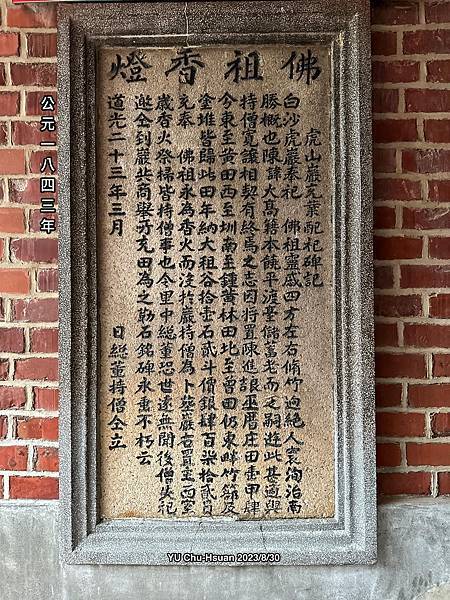 佛祖香燈
虎山巖充業配祀碑記
白沙虎巖奉祀　佛祖靈感四方左右脩竹迥絶人寰洵治南
勝概也陳諱大高籍本饒平渡臺儲蓄老而乏嗣遊此甚適與
持僧寬讓相契有終焉之志因將置陳進課巫厝庄田壹甲肆
今東至黃田西至圳南至鍾黃林田北至曾田仍東畔竹節及
奎堆皆歸此田年納大租谷拾壹石貳斗價銀肆百柒拾貳員
充奉　佛祖永為香火而沒於巖持僧為卜葬巖右買主面室
歲香火祭掃皆持僧事也今里中総董恐世遠無聞後僧失祀
邀仝到巖共商舉充田為之勒石銘碑永垂不朽云
道光二十三年三月　日総董持僧仝立
公元一八四三年
YU Chu-Hsuan 2023/8/30